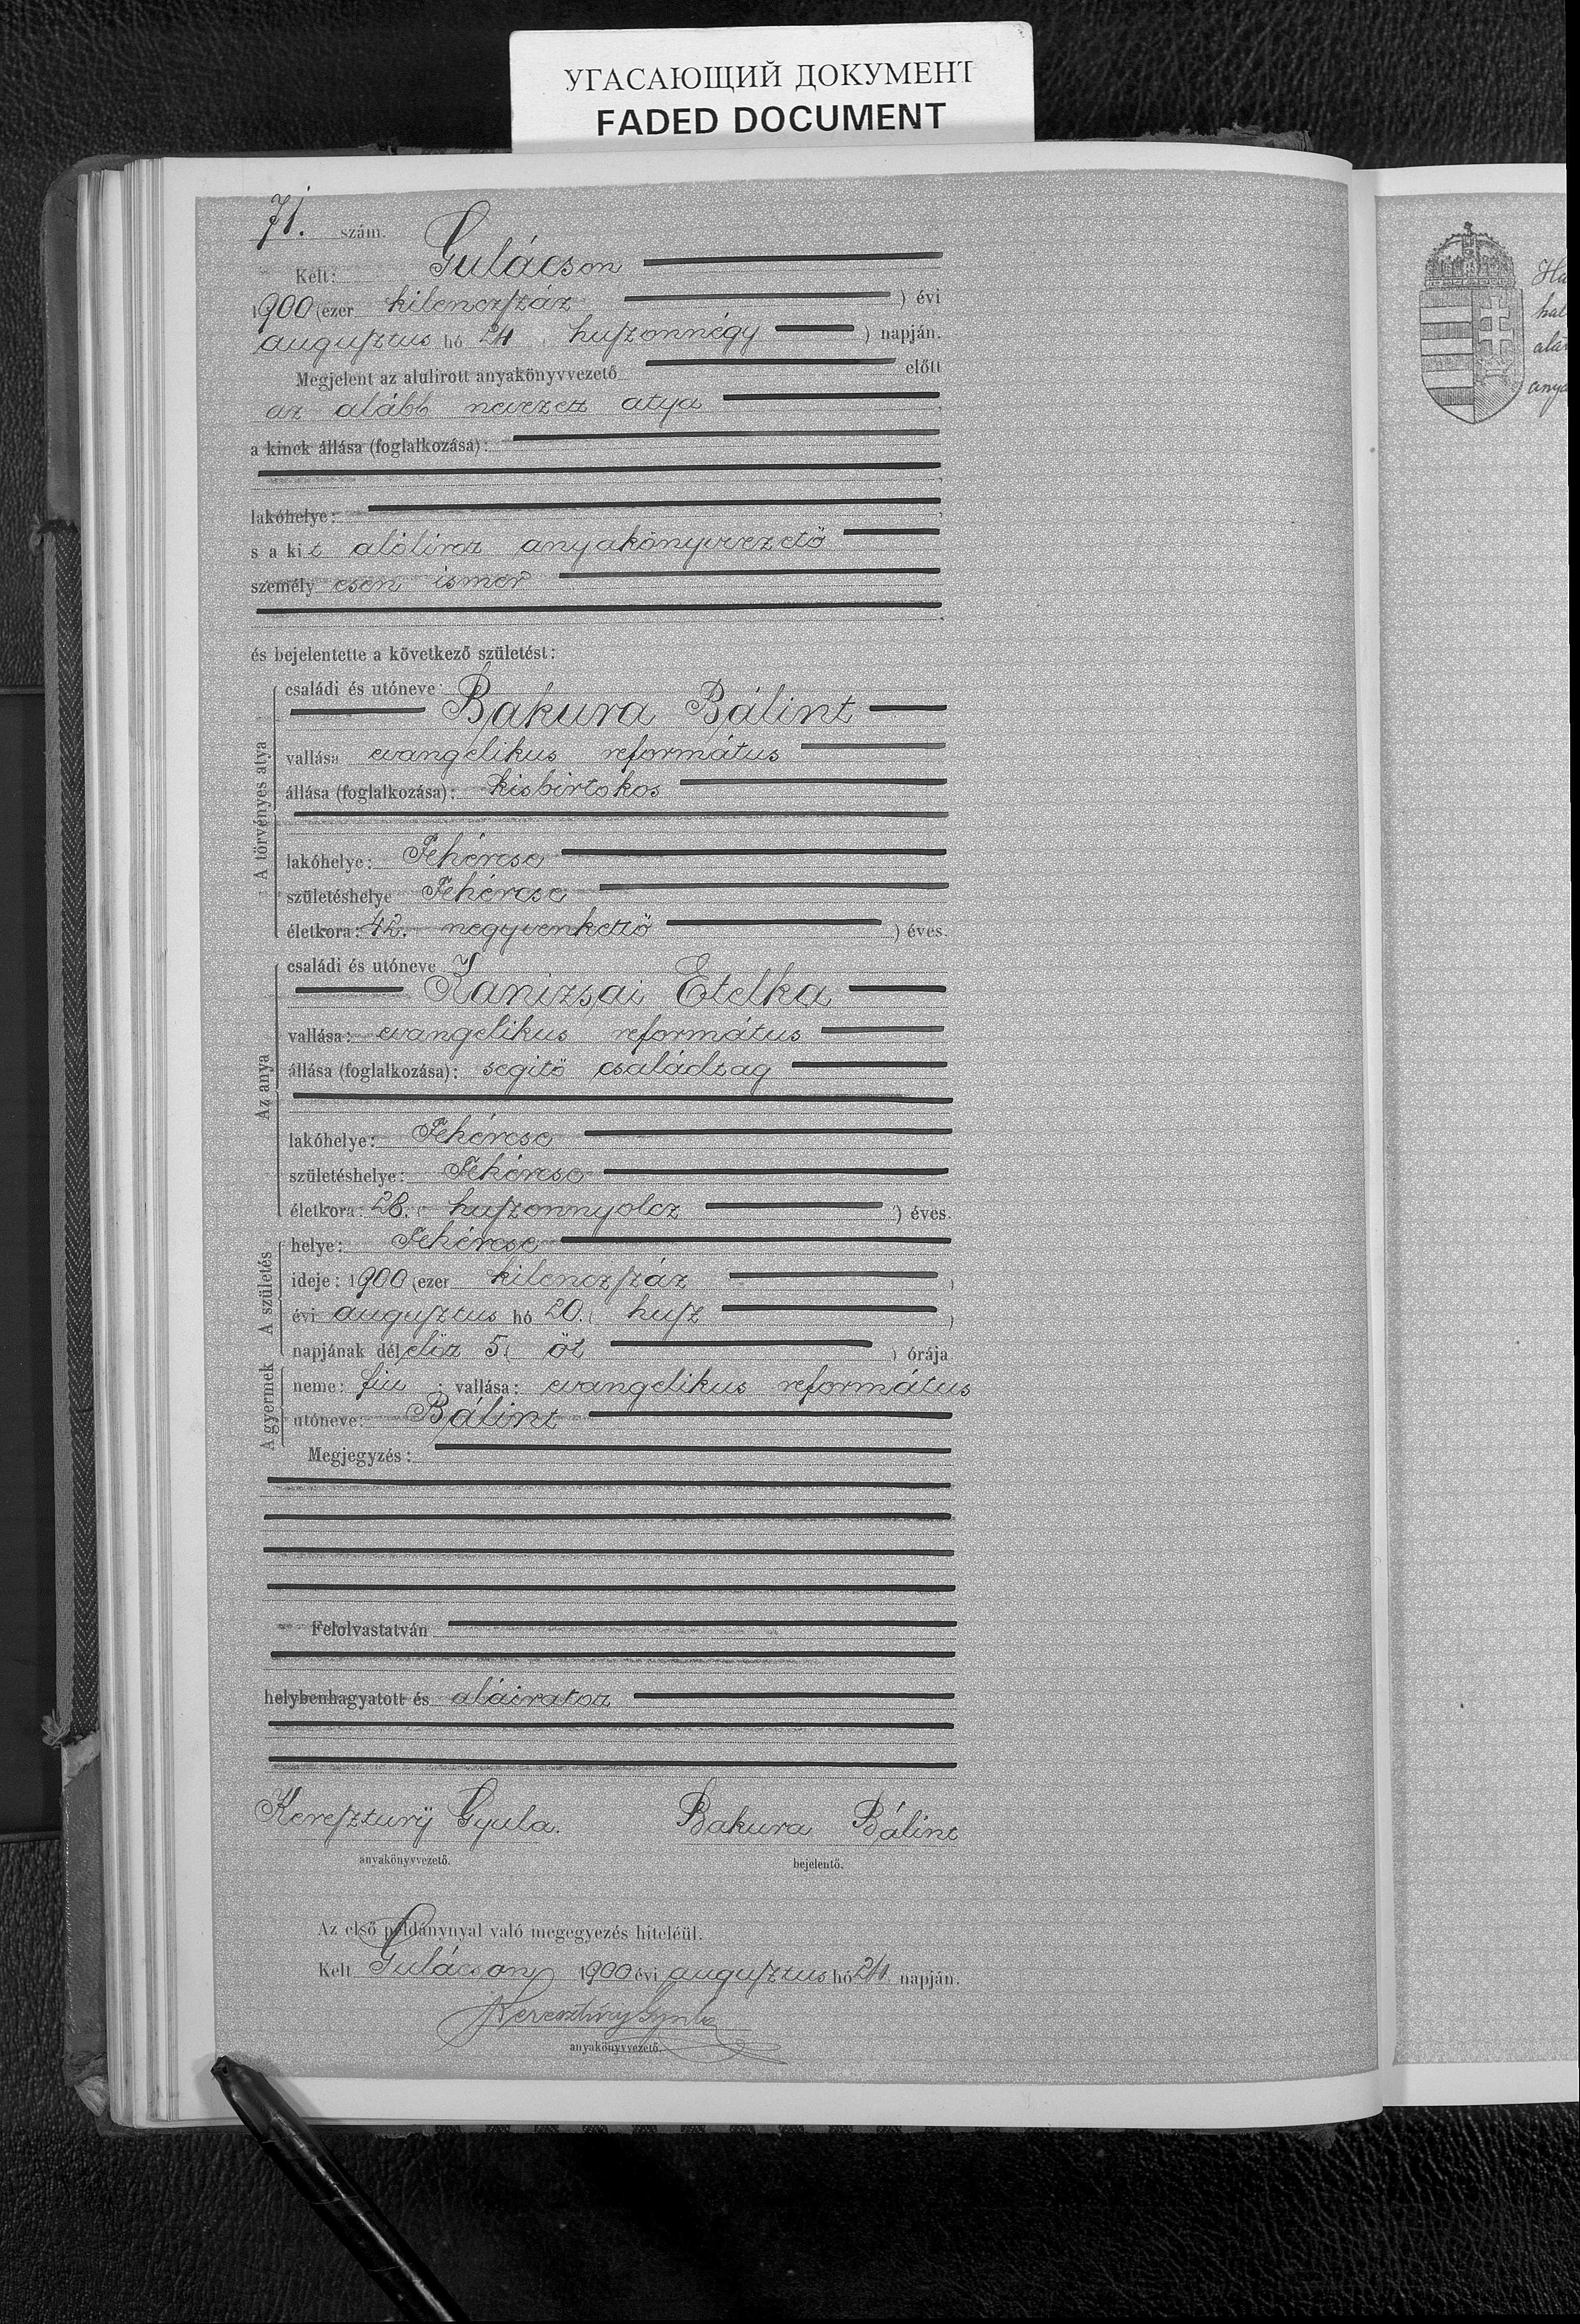 УГАСАЮЩИЙ ДОКУМЕНТ
FADED DOCUMENT
71. szám.
Kelt: Gulácson
1900 (ezer kilenczszáz ) évi
augusztus hó 24 ( huszonnégy ) napján.
Megjelent az alulirott anyakönyvvezető előtt
az alább nevezett atya ,
a kinek állása (foglalkozása):
lakóhelye: ,
s a kit alólíroz anyakönyvvezető
személyesen ismer
és bejelentette a következő születést:
A törvényes atya
családi és utóneve
Bakura Bálint
vallása evangelikus református
állása (foglalkozása): kisbirtokos
lakóhelye: Fehércse
születéshelye Fehércse
életkora: 42. negyvenkettő ) éves.
Az anya
családi és utóneve
Kanizsai Etelka
vallása: evangelikus református
állása (foglalkozása): segitő családtag
lakóhelye: Fehércse
születéshelye: Fehércse
életkora: 28. ( huszonnyolcz ) éves.
A születés
helye: Fehércse
ideje: 1900 (ezer kilenczszáz )
évi augusztus hó 20. ( husz )
napjának délelőtt 5 ( öt ) órája
A gyermek
neme: fiu ; vallása: evangelikus református
utóneve: Bálint
Megjegyzés:
Felolvastatván
helybenhagyatott és aláiratott
Keresztury Gyula. Bakura Bálint
anyakönyvvezető. bejelentő.
Az első példánynyal való megegyezés hiteléül.
Kelt Gulácson 1900 évi augusztus hó 24. napján.
Keresztúry Gyula
anyakönyvvezető.
hal
alá
anya